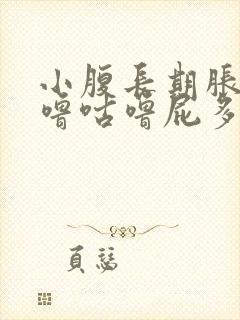 小腹長期脹
嚕咕嚕屁多
頁慧